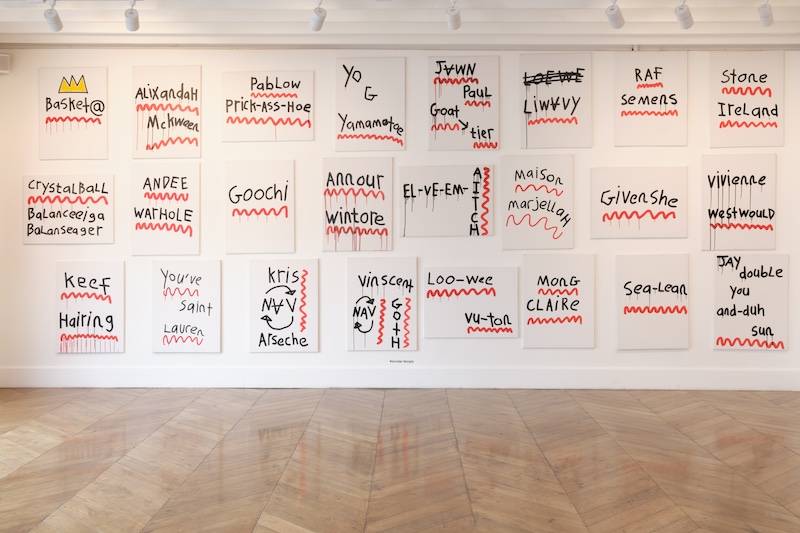 Basket@
Alixandah
McKween
Pablow
Prick-Ass-Hoe
Yo
G
Yamamotoe
JAWN
Paul
Goat
tier
LOEWE
LiWAVY
RAF
Semens
Stone
Ireland
CrystalBall
Balanceeiga
Balanseager
ANDEE
WARHOLE
Goochi
Annour
wintore
EL-VE-EM-
AITCH
maison
marjellah
Givenshe
vivienne
westwould
Keef
Hairing
You've
Saint
Lauren
kris
VAV
Arseche
vinscent
NAV
GOTH
Loo-wee
vu-ton
MONG
CLAIRE
Sea-Lean
JAY
double
you
and-duh
sun